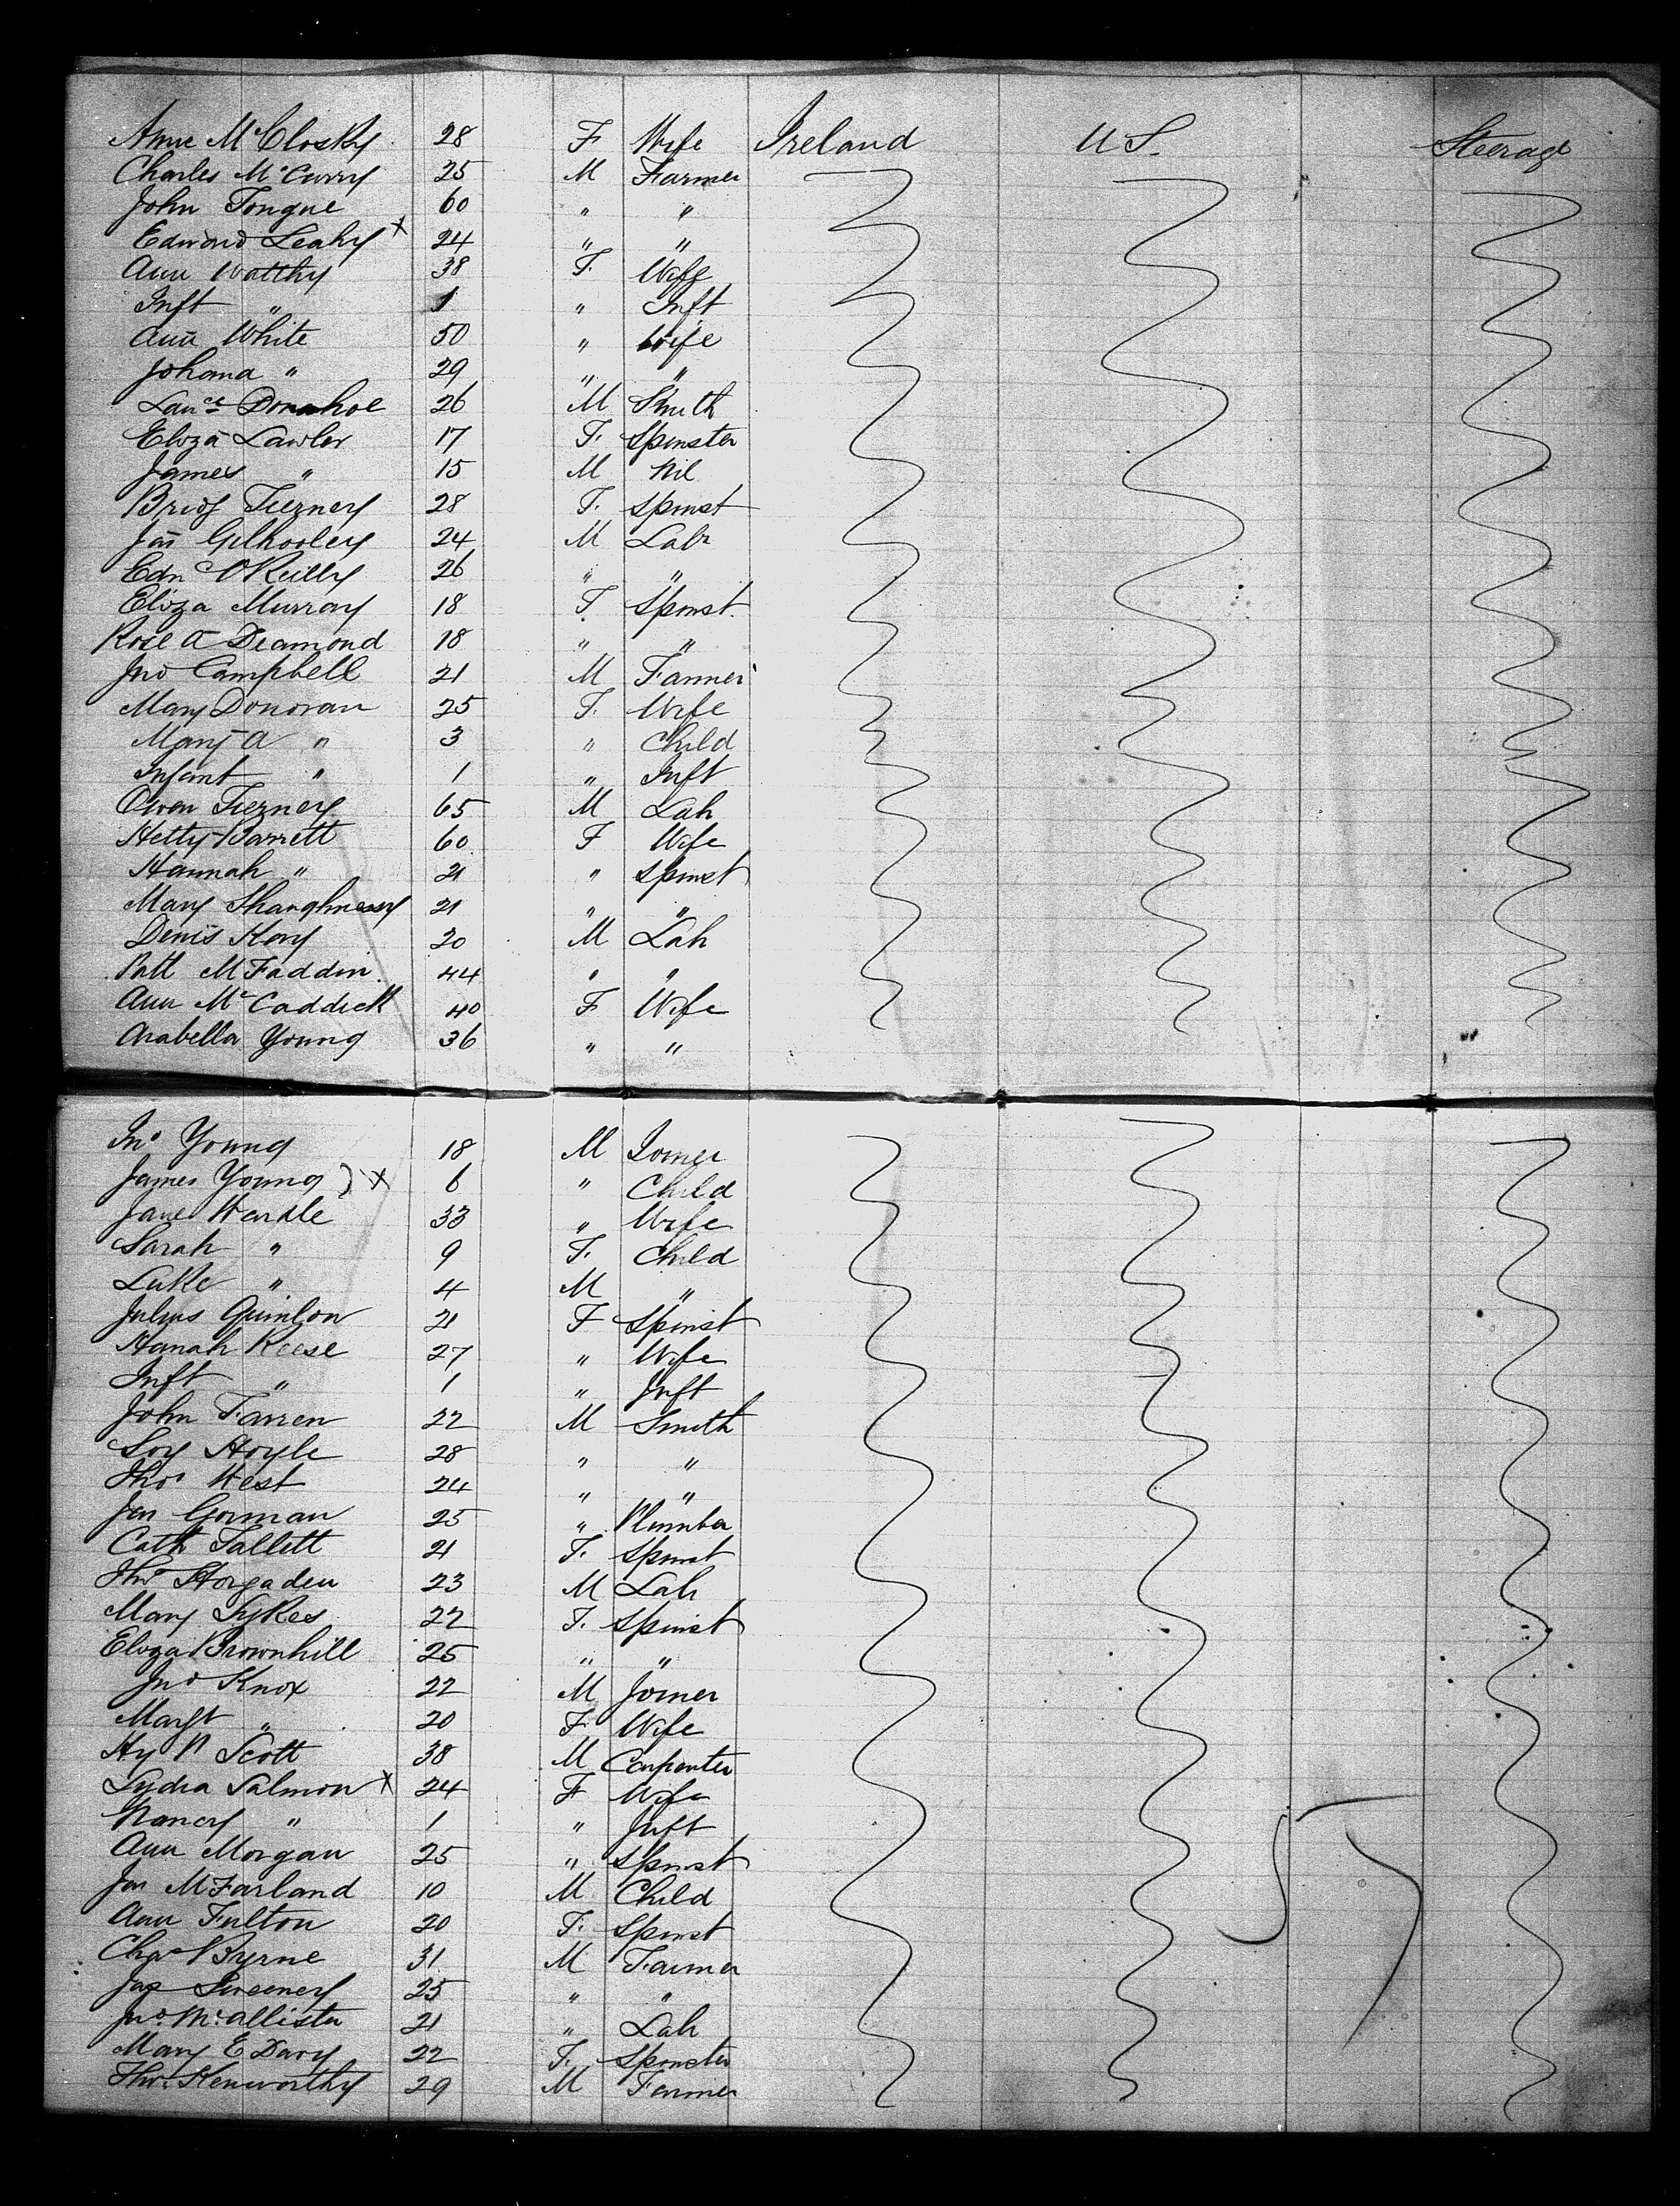 Anne McClosky 28 F Wife Ireland U S. Steerage
Charles McCurry 25 M Farmer
John Tongue 60 " "
Edward Leahy x 24 " "
Ann 38 F. Wife
Inft " 1 " Inft
Ann White 50 " Wife
Johana " 29 " "
Laun ce Donahoe 26 M Smith
Eliza Lawler 17 F. Spinster
James " 15 M Nil
Bridg Tierney 28 F. Spinst
Jas Gilhooley 24 M Labr
Edn O'Reilly 26 " "
Eliza Murray 18 F Spinst.
Rose A Diamond 18 " "
Jno Campbell 21 M Farmer
Mary Donovan 25 F. Wife
Mary A " 3 " Child
Infant " 1 " Inft
Owen Tierney 65 M Lab
Hetty Barrett 60 F Wife
Hannah " 21 " Spinst
Mary Shaughnessy 21 " "
Denis 20 M Lab
Patt McFaddin 44 " "
Ann McCaddick 40 F Wife
Arabella Young 36 " "
Jno Young 18 M Joiner
James Young ) x 6 " Child
Jane 33 " Wife
Sarah " 9 F. Child
Luke " 4 M "
Quinlon 21 F Spinst
Hanah Reese 27 " Wife
Inft " 1 " Inft
John Farren 22 M Smith
Hoyle 28 " "
Thos West 24 " "
Jas Gorman 25 " Plumber
Cath Tallett 21 F. Spinst
Thos Horgaden 23 M Lab
Mary Sykes 22 F. Spinst
Eliza Brownhill 25 " "
Jno Knox 22 M Joiner
Margt " 20 F Wife
Hy Scott 38 M Carpenter
Lydia Salmon x 24 F Wife
Nancy " 1 " Inft
Ann Morgan 25 " Spinst
Jas McFarland 10 M Child
Ann Fulton 20 F. Spinst
Chas Byrne 31 M Farmer
Jas Sweeney 25 " "
Jno McAllister 21 " Lab
Mary E Davy 22 F. Spinster
Thos Kenworthy 29 M Farmer
57